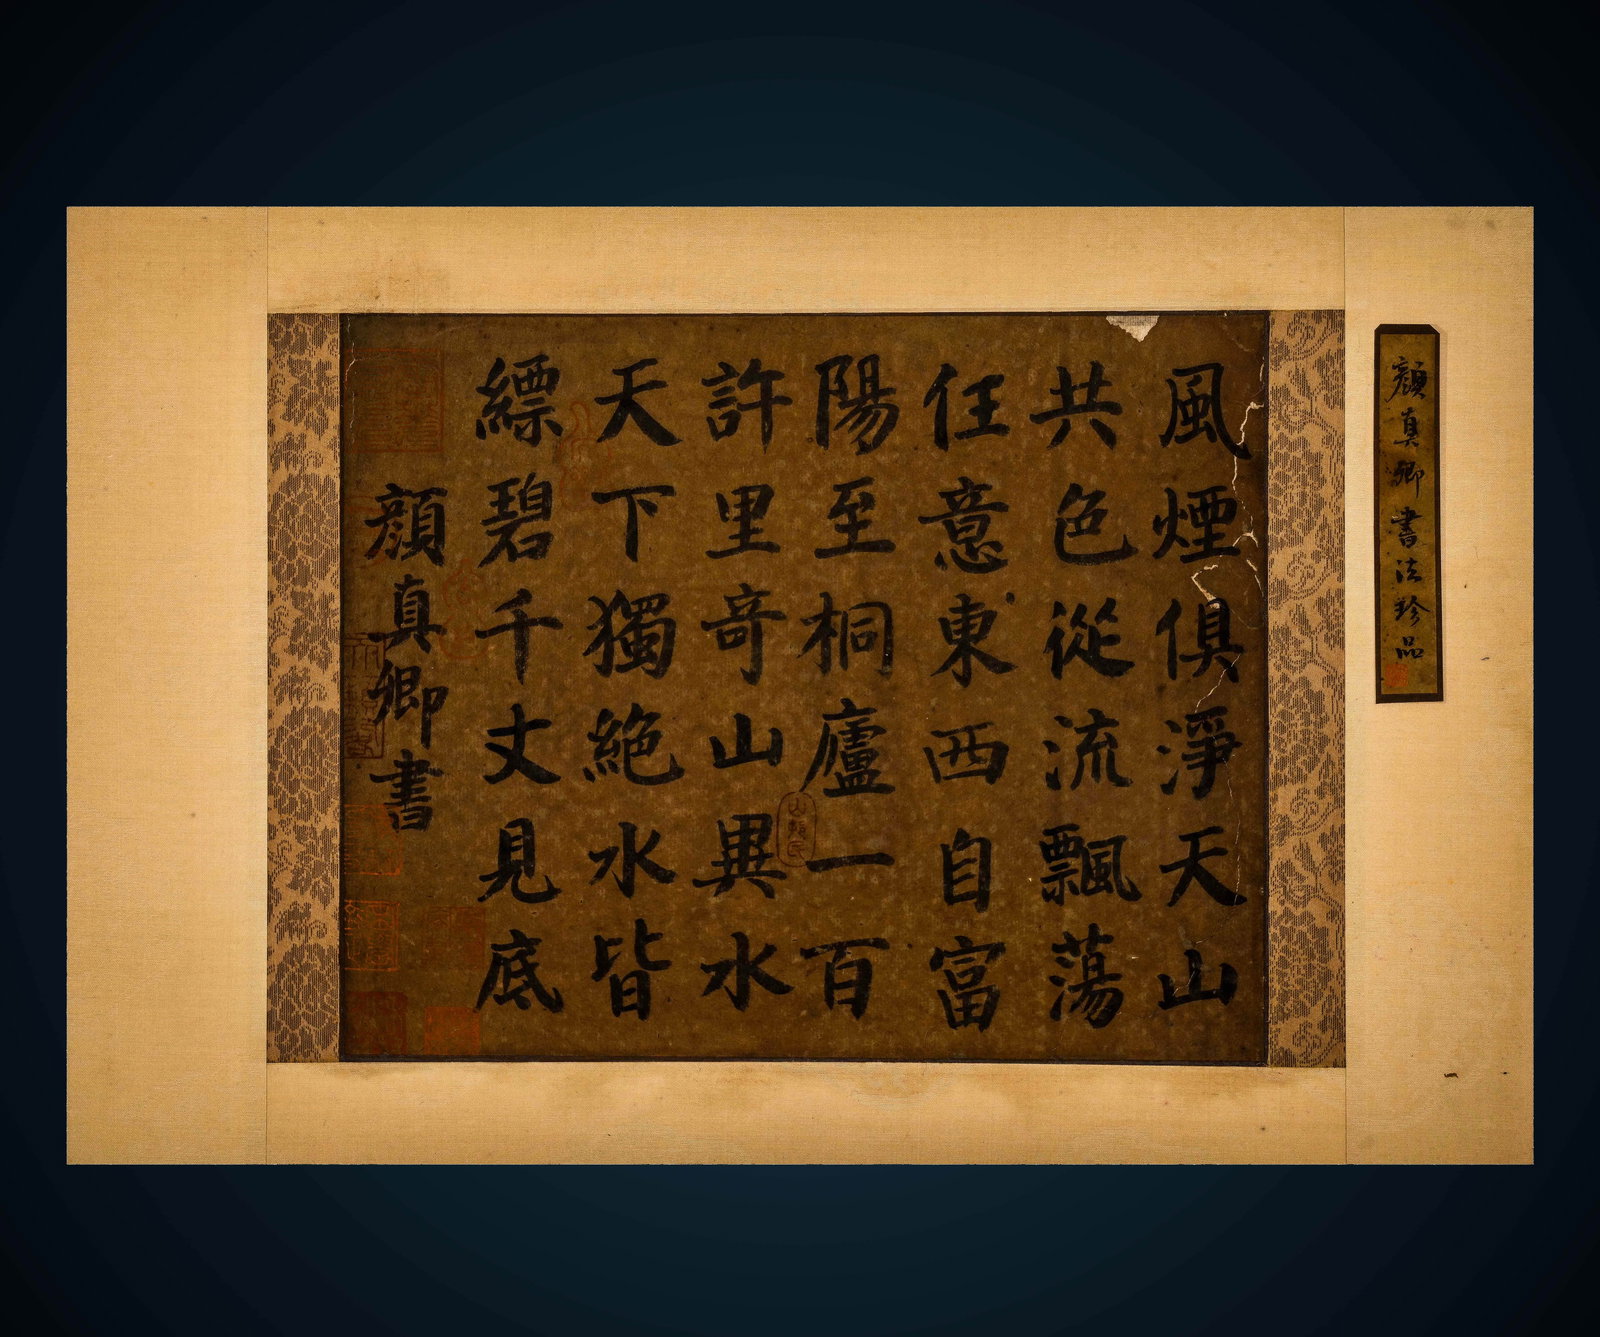 顔真卿書法珍品
風煙俱淨天山
共色從流飄蕩
任意東西自富
陽至桐廬一百
許里奇山異水
天下獨絶水皆
縹碧千丈見底
顔真卿書